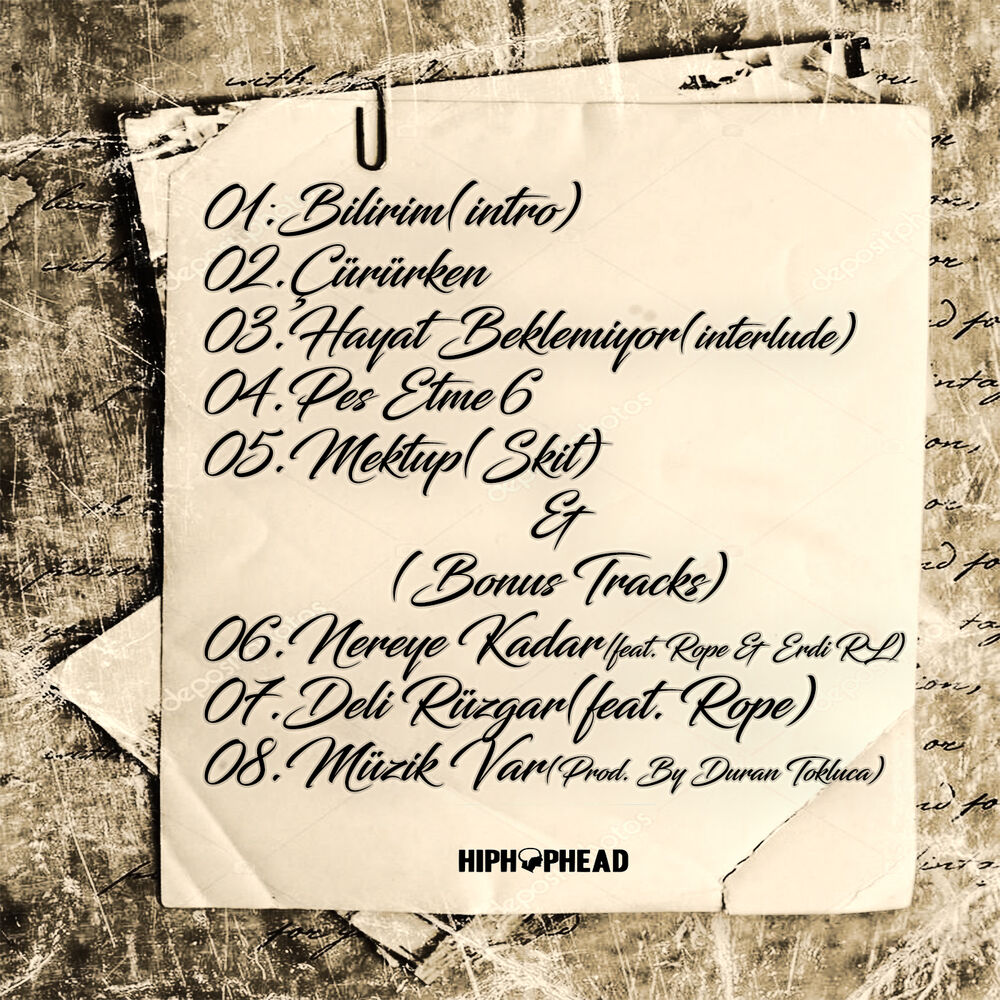 with
you
01. Bilirim(intro)
02. Çürürken
03. Hayat Beklemiyor(interlude)
04. Pes Etme 6
05. Mektup(Skit)
&
(Bonus Tracks)
06. Nereye Kadar(feat. Rope & Erdi RL)
07. Deli Rüzgar(feat. Rope)
08. Müzik Var(Prod. By Duran Tokluca)
HIPHOPHEAD
depositphotos